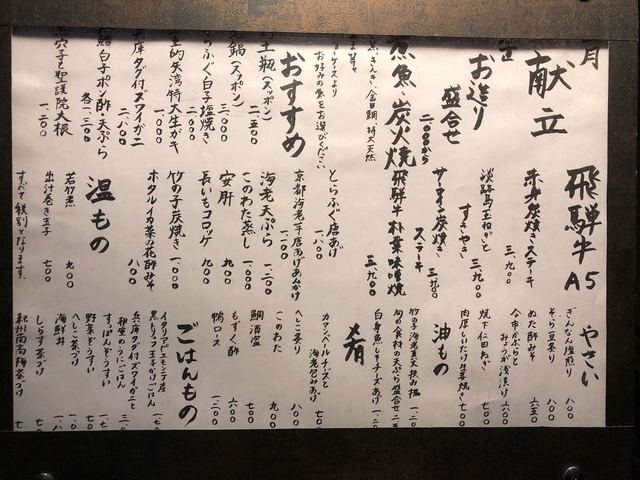 献立
お造り
盛合せ
二、〇〇〇から
魚・炭火焼
お好みの魚をお選びください
おすすめ
土瓶(スッポン)
二、五〇〇
鍋(スッポン)
三、〇〇〇
とらふぐ白子塩焼き
二、〇〇〇
室的矢湾特大生がき
一、〇〇〇
兵庫タグ付ズワイガニ
二、八〇〇
鱈白子ポン酢・天ぷら
各一、三〇〇
穴子と聖護院大根
一、二〇〇
飛騨牛A5
赤身炭焼きステーキ
三、九〇〇
淡路島玉ねぎと
すきやき
三、九〇〇
サーロイン炭焼き
ステーキ
三、九〇〇
飛騨牛朴葉味噌焼
三、九〇〇
とらふぐ唐あげ
一、八〇〇
京都海老芋唐あげあんかけ
一、一〇〇
海老天ぷら
一、二〇〇
このわた蒸し
一、〇〇〇
安肝
九〇〇
長いもコロッケ
九〇〇
竹の子炭焼き
一、〇〇〇
ホタルイカ菜の花酢みそ
八〇〇
温もの
若竹煮
九〇〇
出汁巻き玉子
七〇〇
すべて税別となります。
やさい
ぎんなん塩煎り
八〇〇
そら豆炙り
八〇〇
ぬた酢みそ
六五〇
今市かぶらと
みょうが浅漬け
六〇〇
焼下仁田ねぎ
七〇〇
肉厚しいたけ生姜焼き
七〇〇
油もの
竹の子海老真丈挟み揚
一、二〇〇
旬の食材の天ぷら盛合せ
白身魚しそチーズあげ
一、二〇〇
肴
カマンベールチーズと
海老包みあげ
七〇〇
へしこ炙り
八〇〇
このわた
九〇〇
鯛酒盗
七〇〇
もずく酢
六〇〇
鴨ロース
一、二〇〇
ごはんもの
イタリアピエモンテ産
黒トリュフ玉子かけごはん
兵庫タグ付ズワイガニと
和生のうにごはん
すっぽんぞうすい
野菜ぞうすい
へしこ茶づけ
海鮮丼
しらす茶づけ
紀州南高梅茶づけ